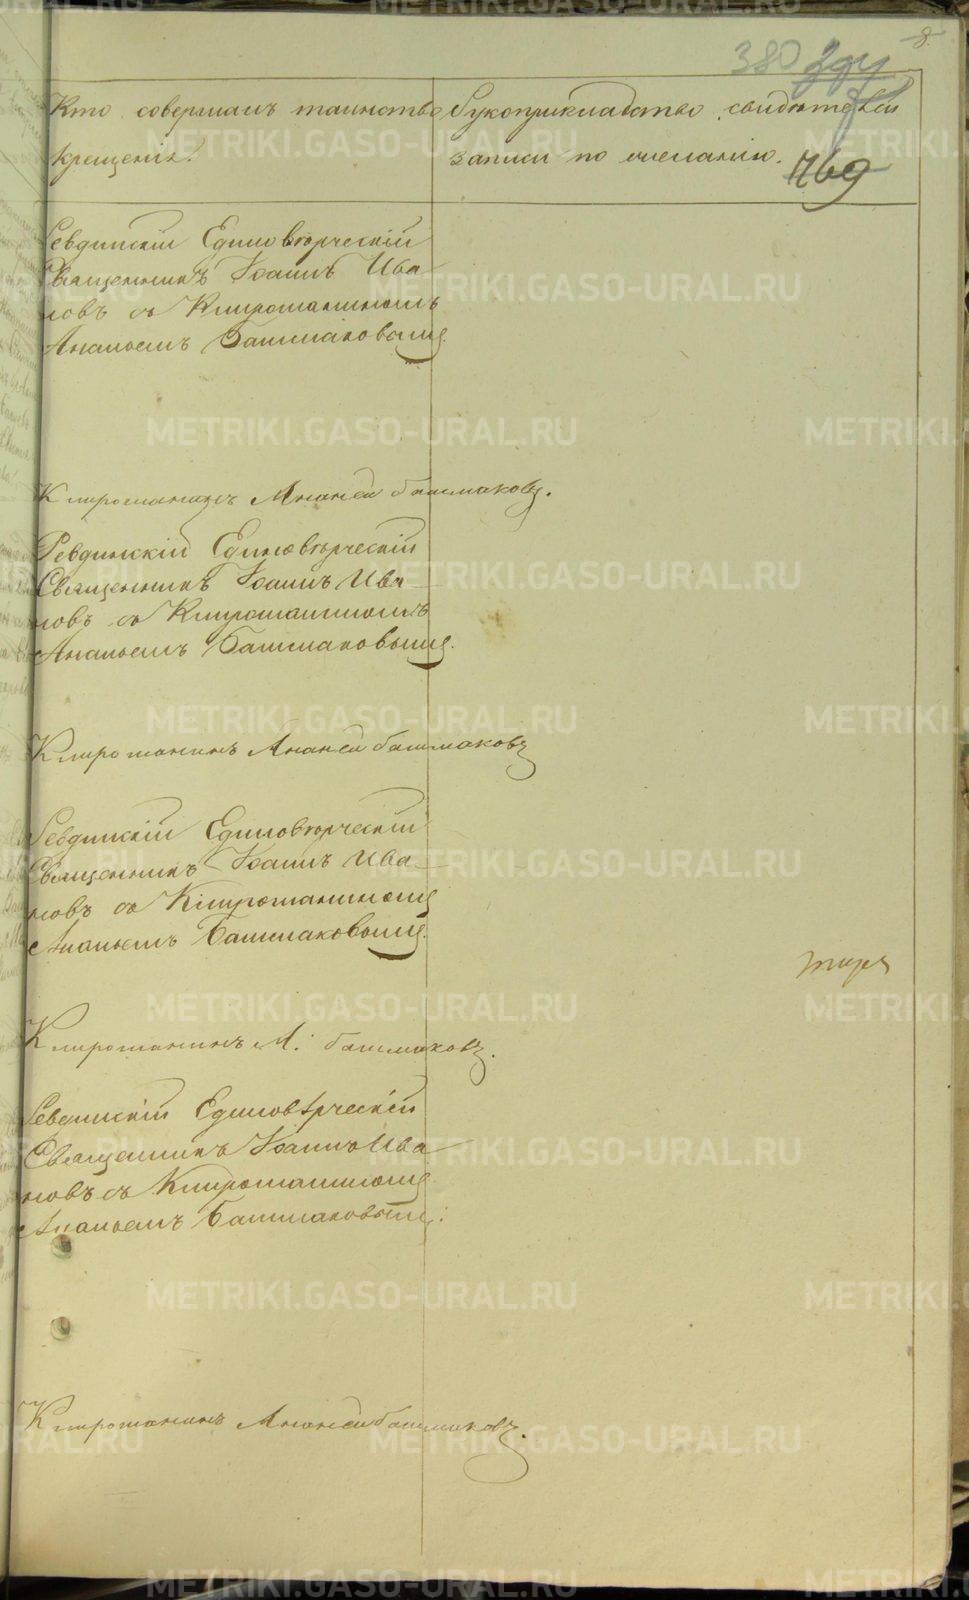 8.
380
769
Кто совершалъ таинство Рукоприкладство свидѣтелей
крещенія. записи по желанію.
Ревдинскій Единовѣрческій
Священникъ Іоаннъ Ива
новъ съ Клирошаниномъ
Ананьемъ Башмаковымъ.
Клирошанинъ Ананей башмаковъ.
Ревдинскій Единовѣрческій
Священникъ Іоаннъ Ива
новъ съ Клирошаниномъ
Ананьемъ Башмаковымъ.
Клирошанинъ Ананей башмаковъ
Ревдинскій Единовѣрческій
Священникъ Іоаннъ Ива
новъ съ Клирошаниномъ
Ананьемъ Башмаковымъ.
Клирошанинъ А: башмаковъ.
Ревдинскій Единовѣрческій
Священникъ Іоаннъ Ива
новъ съ Клирошаниномъ
Ананьемъ Башмаковымъ.
Клирошанинъ Ананей башмаковъ.
METRIKI.GASO-URAL.RU